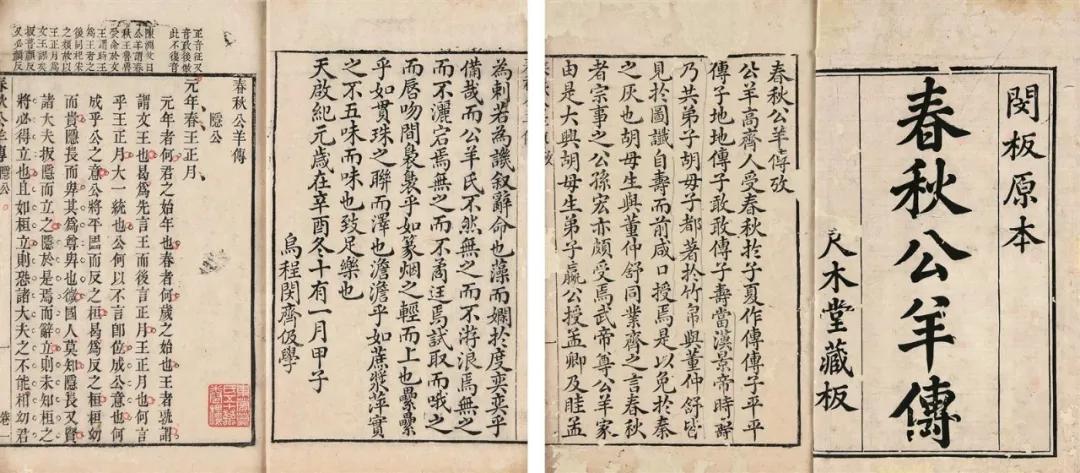 閔板原本
春秋公羊傳
尺木堂藏板
春秋公羊傳攷
公羊高齊人受春秋於子夏作傳傳子平平
傳子地地傳子敢敢傳子壽當漢景帝時壽
乃共弟子胡母子都著於竹帛與董仲舒皆
見於圖讖自壽而前咸口授焉是以免於秦
之灰也胡母生與董仲舒同業齊之言春秋
者宗事之公孫宏亦頗受焉武帝尊公羊家
由是大興胡母生弟子嬴公授孟卿及眭孟
為刺若為譏叙辭命也藻而嫻於度奕奕乎
備哉而公羊氏不然無之而不游浪焉無之
而不灑宕焉無之而不矞汪焉試取而哦之
而唇吻間裊裊乎如篆烟之輕而上也纍纍
乎如貫珠之聯而澤也澹澹乎如蔗漿萍實
之不五味而味也致足樂也
天啟紀元歲在辛酉冬十有一月甲子
烏程閔齊伋學
正音征又
音政後倣
此不復音
公羊謂春
秋王魯魯
王謂時王
為王者之
之類故以
王正月為
文王誤矣
扳普顔反
又必顔反
春秋公羊傳
隱公
元年春王正月
元年者何君之始年也春者何歲之始也王者孰謂
謂文王也曷為先言王而後言正月王正月也何言
乎王正月大一統也公何以不言即位成公意也何
成乎公之意公將平國而反之桓曷為反之桓桓幼
而貴隱長而卑其為尊卑也微國人莫知隱長又賢
諸大夫扳隱而立之隱於是焉而辭立則未知桓之
將必得立也且如桓立則恐諸大夫之不能相幼君
春秋公羊傳 隱公 卷一